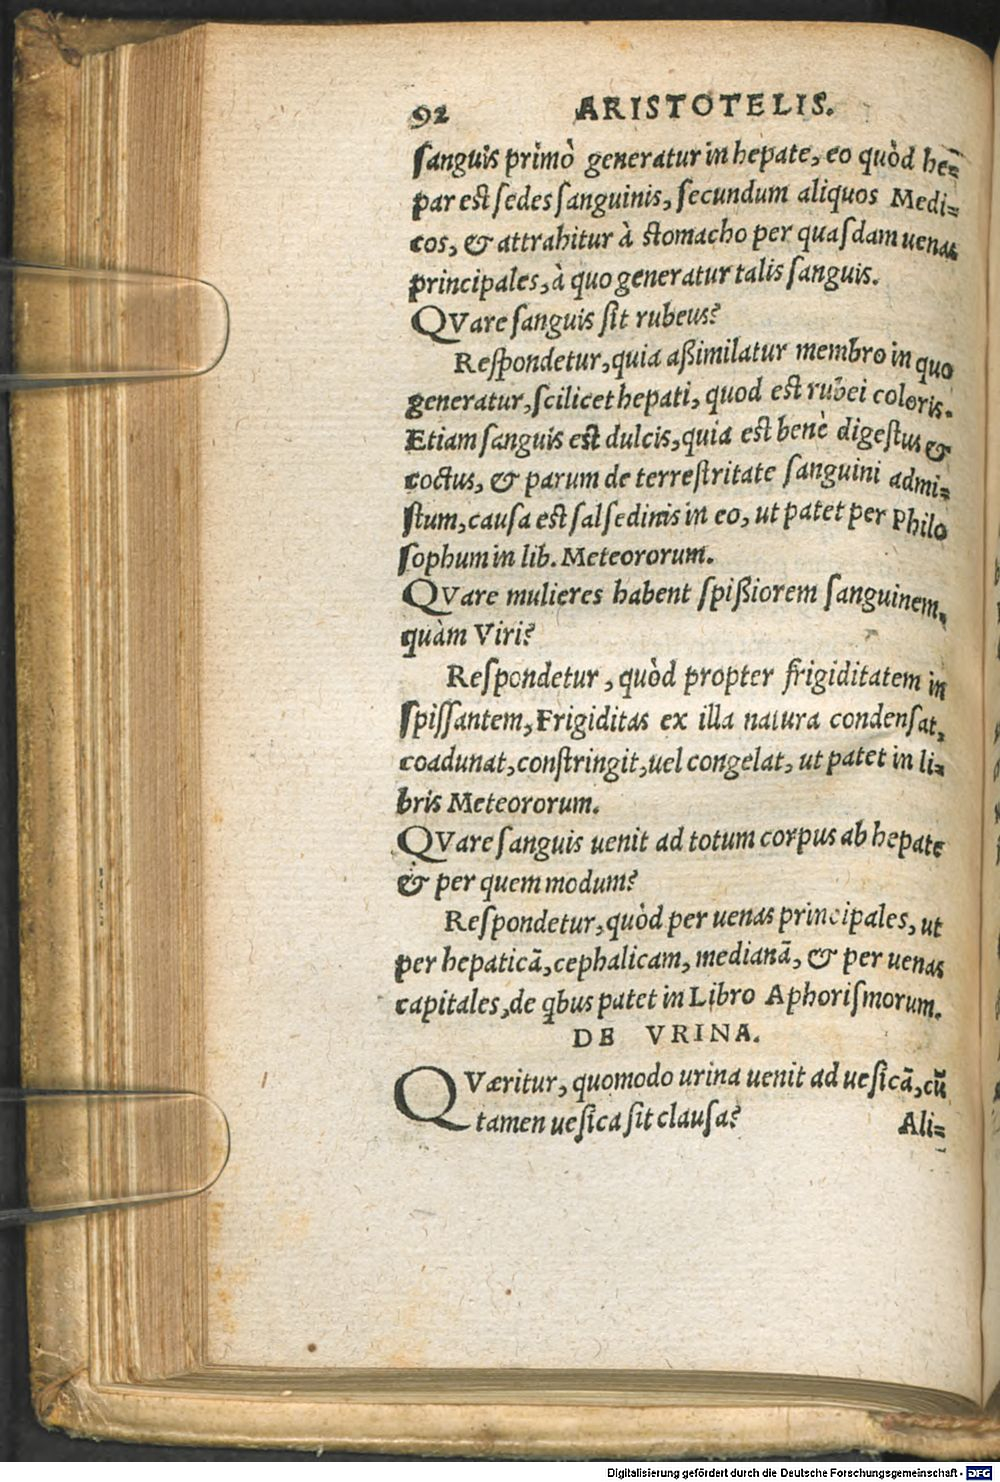 92 ARISTOTELIS.
sanguis primò generatur in hepate, eo quòd he=
par est sedes sanguinis, secundum aliquos Medi=
cos, & attrahitur à stomacho per quasdam uenas
principales, à quo generatur talis sanguis.
QVare sanguis sit rubeus?
Respondetur, quia aßimilatur membro in quo
generatur, scilicet hepati, quod est rubei coloris.
Etiam sanguis est dulcis, quia est benè digestus &
coctus, & parum de terrestritate sanguini admi=
stum, causa est salsedinis in eo, ut patet per Philo
sophum in lib. Meteororum.
QVare mulieres habent spißiorem sanguinem,
quàm Viri?
Respondetur, quòd propter frigiditatem in
spissantem, Frigiditas ex illa natura condensat,
coadunat, constringit, uel congelat, ut patet in li=
bris Meteororum.
QVare sanguis uenit ad totum corpus ab hepate
& per quem modum?
Respondetur, quòd per uenas principales, ut
per hepaticã, cephalicam, medianã, & per uenas
capitales, de qbus patet in Libro Aphorismorum.
DE VRINA.
QVæritur, quomodo urina uenit ad uesicã, cũ
tamen uesica sit clausa?
Ali=
Digitalisierung gefördert durch die Deutsche Forschungsgemeinschaft - DFG